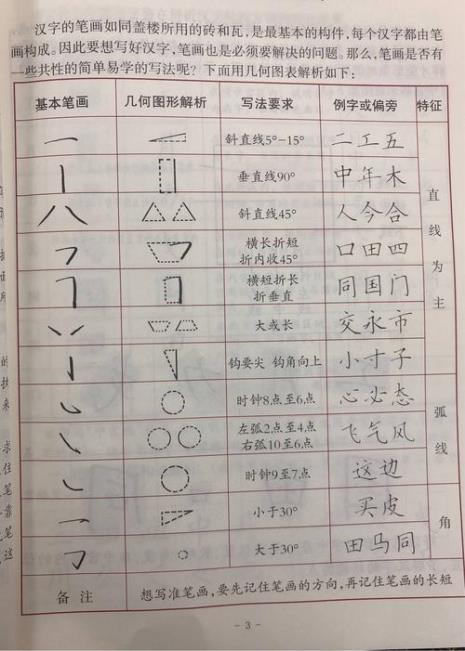 汉字的笔画如同盖楼所用的砖和瓦,是最基本的构件,每个汉字都由笔
画构成。因此要想写好汉字,笔画也是必须要解决的问题。那么,笔画是否有
一些共性的简单易学的写法呢?下面用几何图表解析如下:
基本笔画 几何图形解析 写法要求 例字或偏旁 特征
斜直线5°-15° 二工五
垂直线90° 中年木
斜直线45° 人今合
横长折短
折内收45° 口田四
横短折长
折垂直 同国门
大或长 交永市
钩要尖 钩角向上 小寸子
直线为主
时钟8点至6点 心必态
左弧2点至4点
右弧10至6点 飞气风
时钟9至7点 这边
弧线
小于30° 买皮
大于30° 田马同
角
备注 想写准笔画,要先记住笔画的方向,再记住笔画的长短
- 3 -